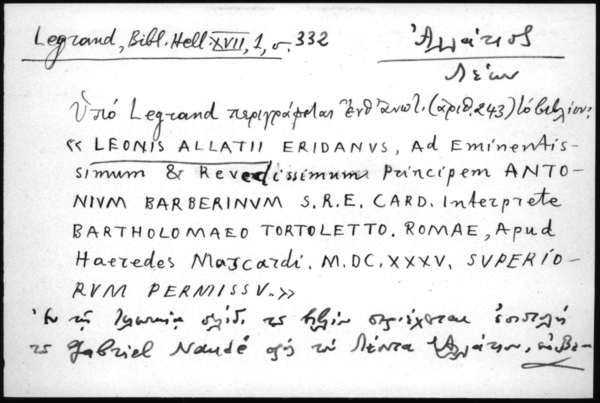 Legrand, Bibl. Hell. XVII, 1, σ. 332
Ἀλλάτιος
Λέων
Ὑπό Legrand περιγράφεται ἐνθ' ἀνωτ. (ἀριθ. 243) τό βιβλίον:
« LEONIS ALLATII ERIDANVS, Ad Eminentis-
simum & Reverdissimum Principem ANTO-
NIVM BARBERINVM S.R.E. CARD. Interprete
BARTHOLOMAEO TORTOLETTO. ROMAE, Apud
Haeredes Mascardi. M.DC.XXXV. SVPERIO-
RVM PERMISSV.»
Ἐν τῇ σελίδ. τοῦ βιβλίου περιέχεται ἐπιστολή
τοῦ Gabriel Naudé πρός τόν Λέοντα Ἀλλάτιον,